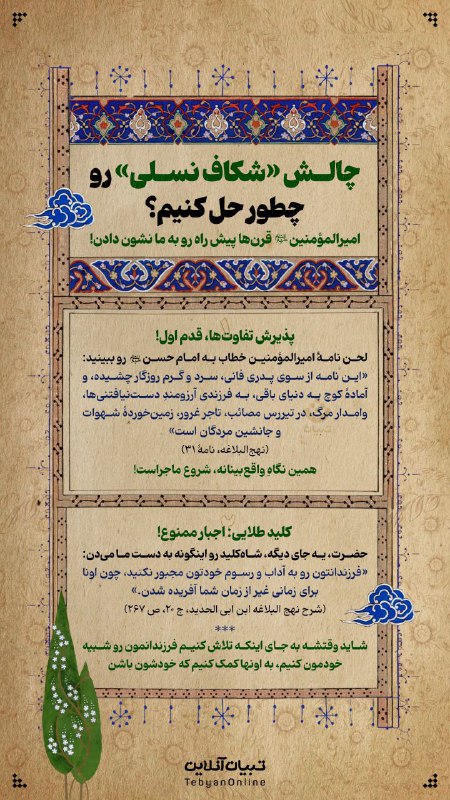 چالش «شکاف نسلی» رو
چطور حل کنیم؟
امیرالمؤمنین قرن‌ها پیش راه رو به ما نشون دادن!
پذیرش تفاوت‌ها، قدم اول!
لحن نامهٔ امیرالمؤمنین خطاب به امام حسن رو ببینید:
«این نامه از سوی پدری فانی، سرد و گرم روزگار چشیده، و
آمادهٔ کوچ به دنیای باقی، به فرزندی آرزومندِ دست‌نیافتنی‌ها،
وامدار مرگ، در تیررس مصائب، تاجر غرور، زمین‌خوردهٔ شهوات
و جانشین مردگان است»
(نهج‌البلاغه، نامهٔ ۳۱)
همین نگاهِ واقع‌بینانه، شروع ماجراست!
کلید طلایی؛ اجبار ممنوع!
حضرت، یه جای دیگه، شاه‌کلید رو اینگونه به دست ما می‌دن:
«فرزندانتون رو به آداب و رسوم خودتون مجبور نکنید، چون اونا
برای زمانی غیر از زمان شما آفریده شدن.»
(شرح نهج البلاغه ابن ابی الحدید، ج ۲۰، ص ۲۶۷)
***
شاید وقتشه به جای اینکه تلاش کنیم فرزندانمون رو شبیه
خودمون کنیم، به اونها کمک کنیم که خودشون باشن
تبیان آنلاین
TebyanOnline